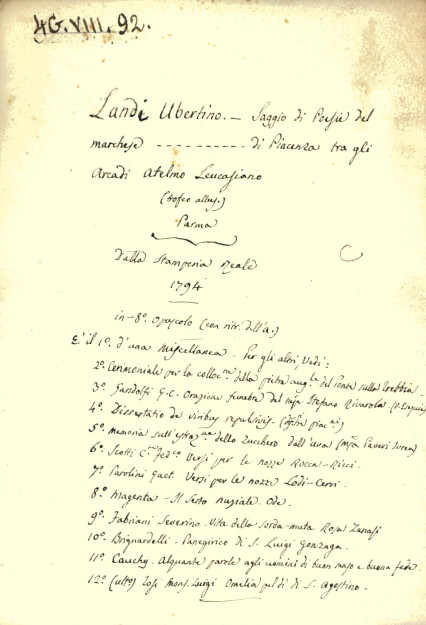 4G.VIII.92.
Landi Ubertino. — Saggio di Poesie del
marchese ---------- di Piacenza tra gli
Arcadi Atelmo Leucasiano
(trofeo allus.)
Parma
Dalla Stamperia Reale
1794
in-8º. Opuscolo (con ritr. dell'a.)
E' il 1º. d'una Miscellanea. Per gli altri, Vedi:
2º. Cerimoniale per la colloc.ne della pietra aug.le del Ponte sulla Trebbia.
3º. Gandolfi G.C. Orazione funebre del Stefano Rivarola
4º. Dissertatio de viribus repulsivis
5º. Memoria sull'estraz.ne dello Zucchero dall'uva
6º. Scotti C. Fed.co Versi per le nozze Rocca-Ricci.
7º. Parolini Gaet. Versi per le nozze Lodi-Cervi.
8º. Magenta - Il Serto nuziale. Ode.
9º. Fabriani Severino. Vita della sorda-muta Rosa Zanasi
10º. Brignardelli - Panegirico di S. Luigi Gonzaga.
11º. Cauchy. Alquante parole agli uomini di buon naso e buona fede.
12º (ulto) Losi Mons. Luigi Omelia pel dì di S. Agostino.